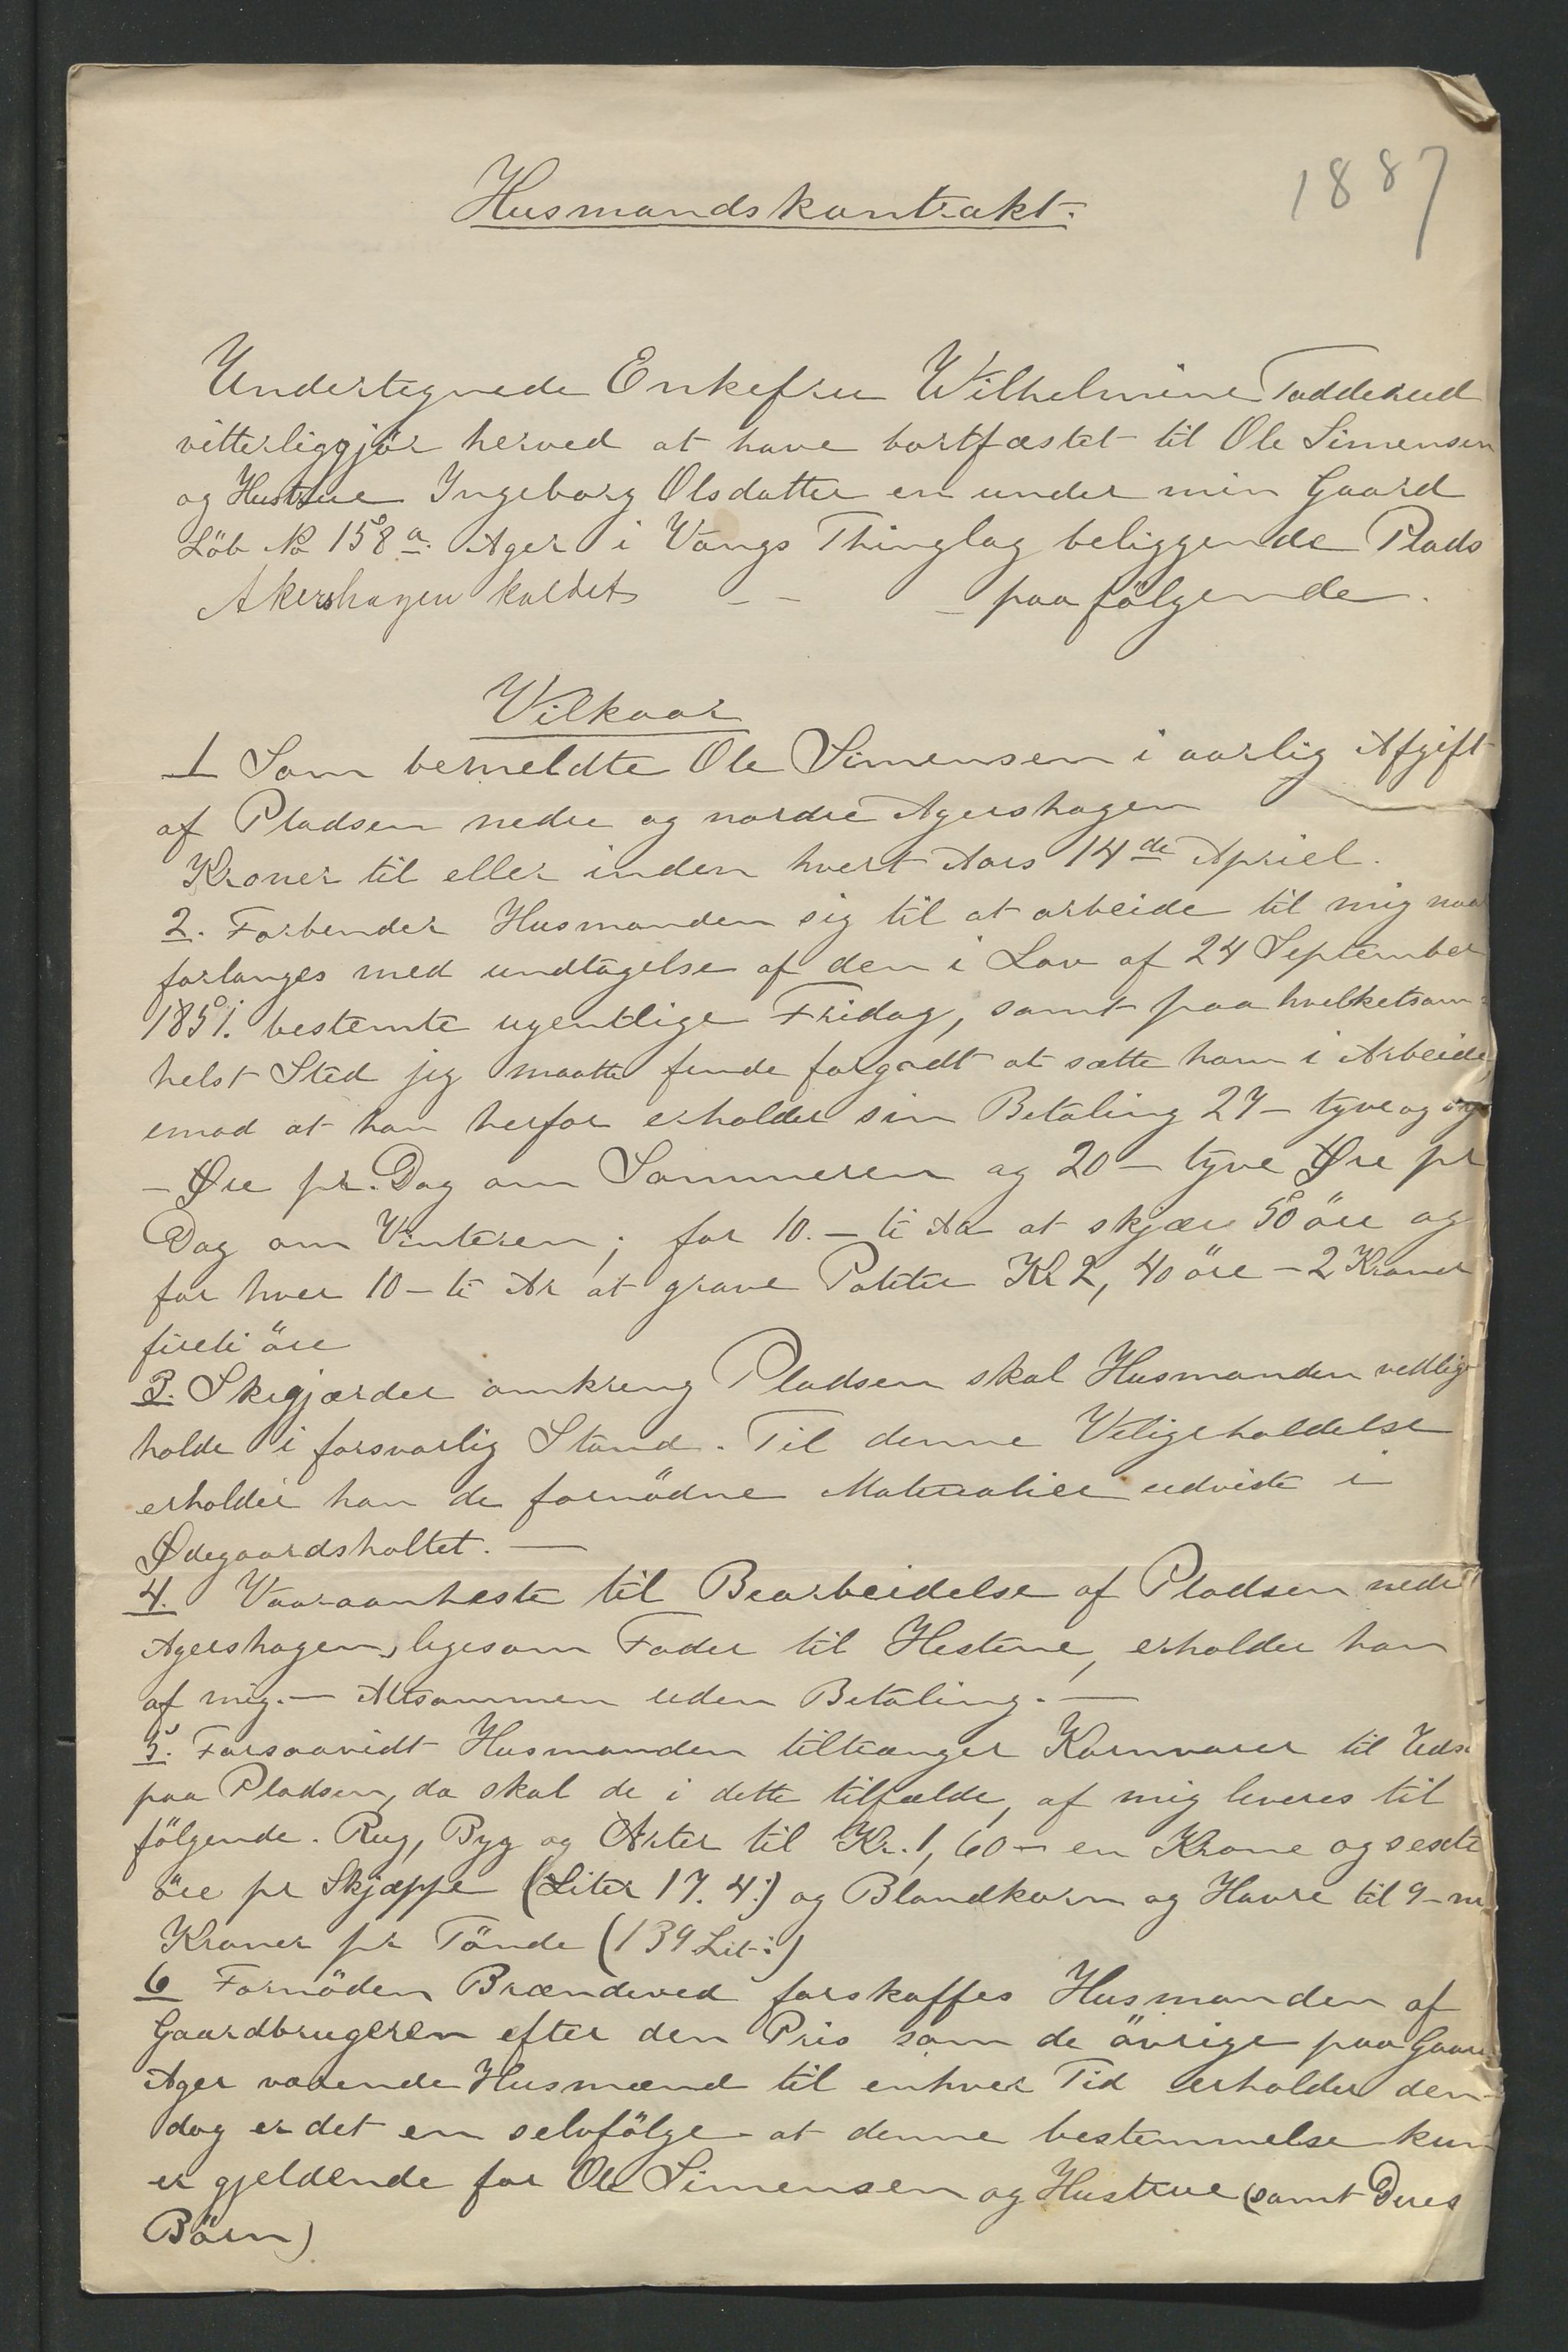 Husmandskontrakt.
1887
Undertegnede Enkefru Wilhelmine Todderud
vitterliggjör herved at have bortfæstet til Ole Simensen
og Hustrue Ingeborg Olsdatter en under min Gaard
Löb No 158 a. Ager i Vangs Thinglag beliggende Plads
Akershagen kaldet - - - paa fölgende.
Vilkaar
1 Som bemeldte Ole Simensen i aarlig Afgift
af Pladsen nedre og nordre Agershagen
Kroner til eller inden hvert Aars 14de Apriel.
2. Forbender Husmanden sig til at arbeide til mig naar
forlanges med undtagelse af den i Lov af 24 September
1851. bestemte ugentlige Fridag, samt paa hvilketsom=
helst Sted jeg maatte finde forgodt at sætte ham i Arbeide,
imod at han herfor erholder sin Betaling 27 - tyve og
- Øre pr. Dag om Sommeren og 20 - tyve Øre pr
Dag om Vinteren; for 10. - ti Ar at skjære 50 öre og
for hver 10 - ti Ar at grave Poteter Kr 2, 40 öre - 2 Kroner
fireti öre
3. Skigjærder omkring Pladsen skal Husmanden vedlige
holde i forsvarlig Stand. Til denne Veligeholdelse
erholder han de fornödne Materialier udviste i
Ødegaardsholtet. -
4. Vaaraanheste til Bearbeidelse af Pladsen nedre
Agershagen, ligesom Foder til Hestene, erholder han
af mig. - Altsammen uden Betaling. -
5. Forsaavidt Husmanden tiltrænger Kornvarer til Uds
paa Pladsen, da skal de i dette tilfælde, af mig leveres til
fölgende. Rug, Byg og Erter til Kr. 1, 60 - en Krone og sexti
öre pr Skjæppe (Liter 17. 4:) og Blandkorn og Havre til 9 - ni
Kroner pr Tönde (139 Lit:)
6 Fornöden Brændeved forskaffes Husmanden af
Gaardbrugeren efter den Pris som de övrige paa Gaard
Ager værende Husmænd til enhver Tid erholder den
dog er det en selvfölge at denne bestemmelse kun
er gjeldende for Ole Simensen og Hustrue (samt Deres
Börn)